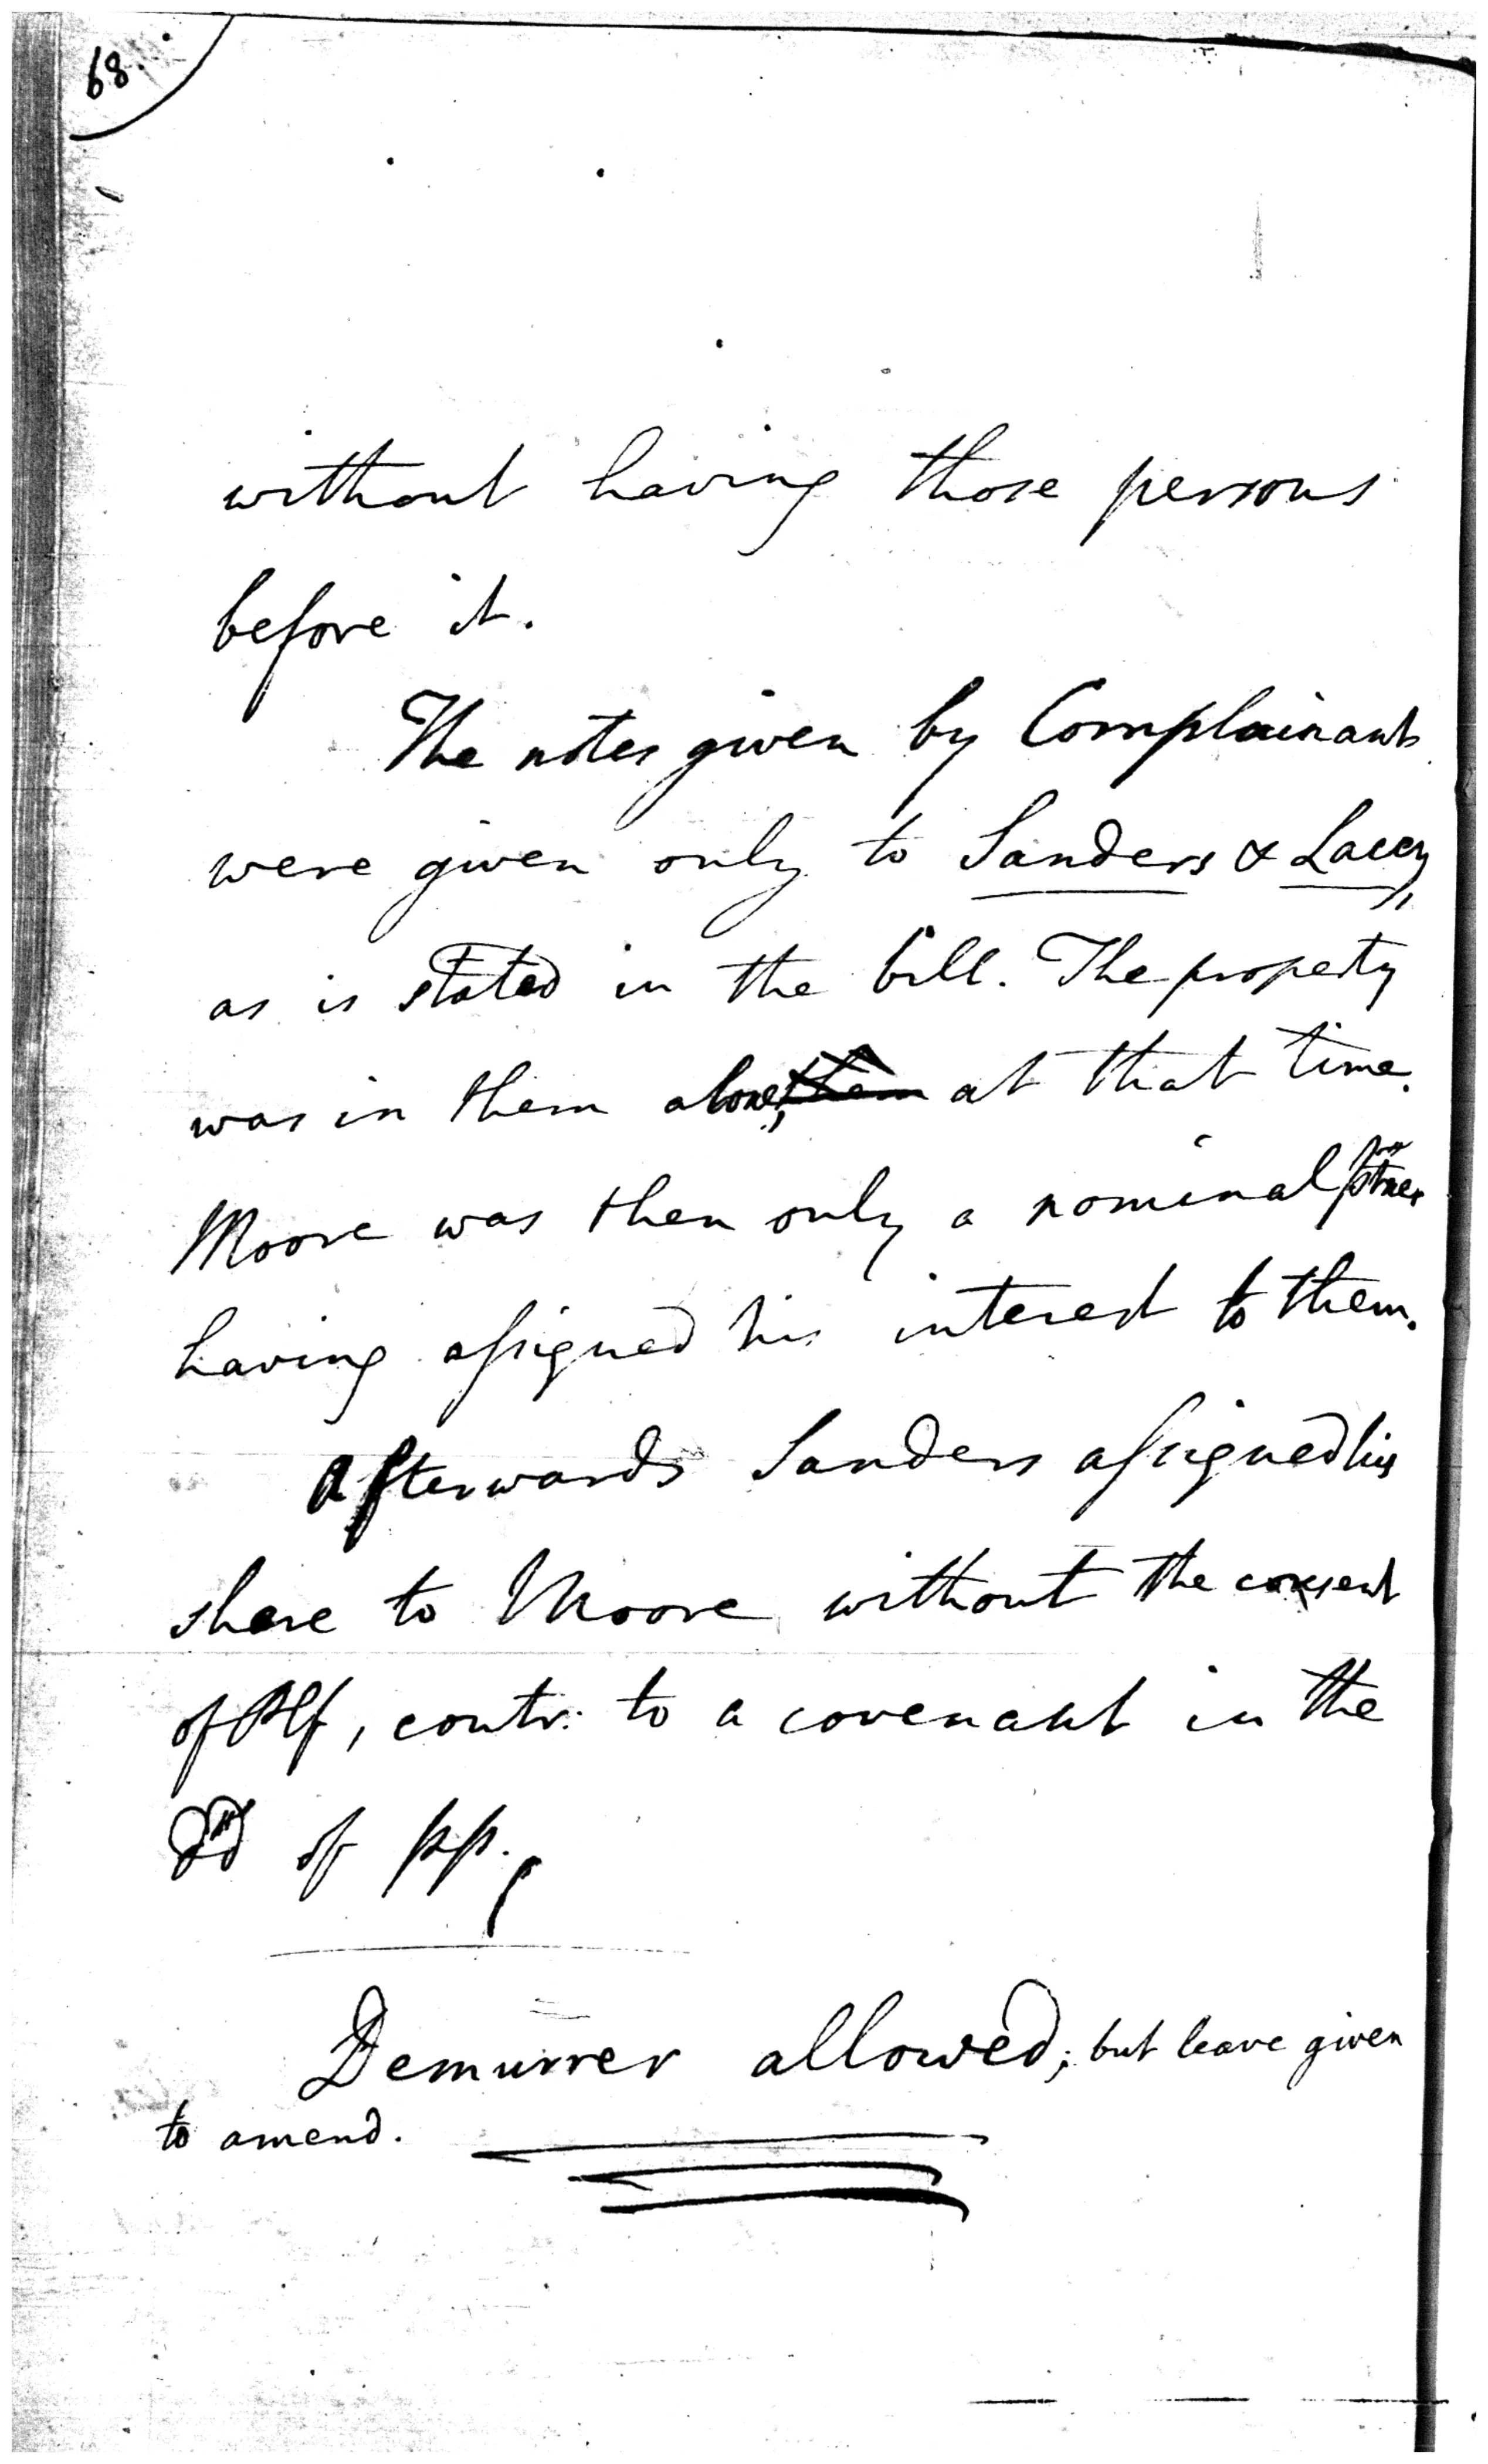 68.
without having those persons
before it.
The notes given by Complainant
were given only to Sanders & Lacey,
as is stated in the bill. The property
was in them alone, them at that time.
Moore was then only a nominal ptner
having assigned his interest to them.
Afterwards Sanders assigned his
share to Moore without the consent
of Plf, contr: to a covenant in the
of pp.
Demurrer allowed; but leave given
to amend.